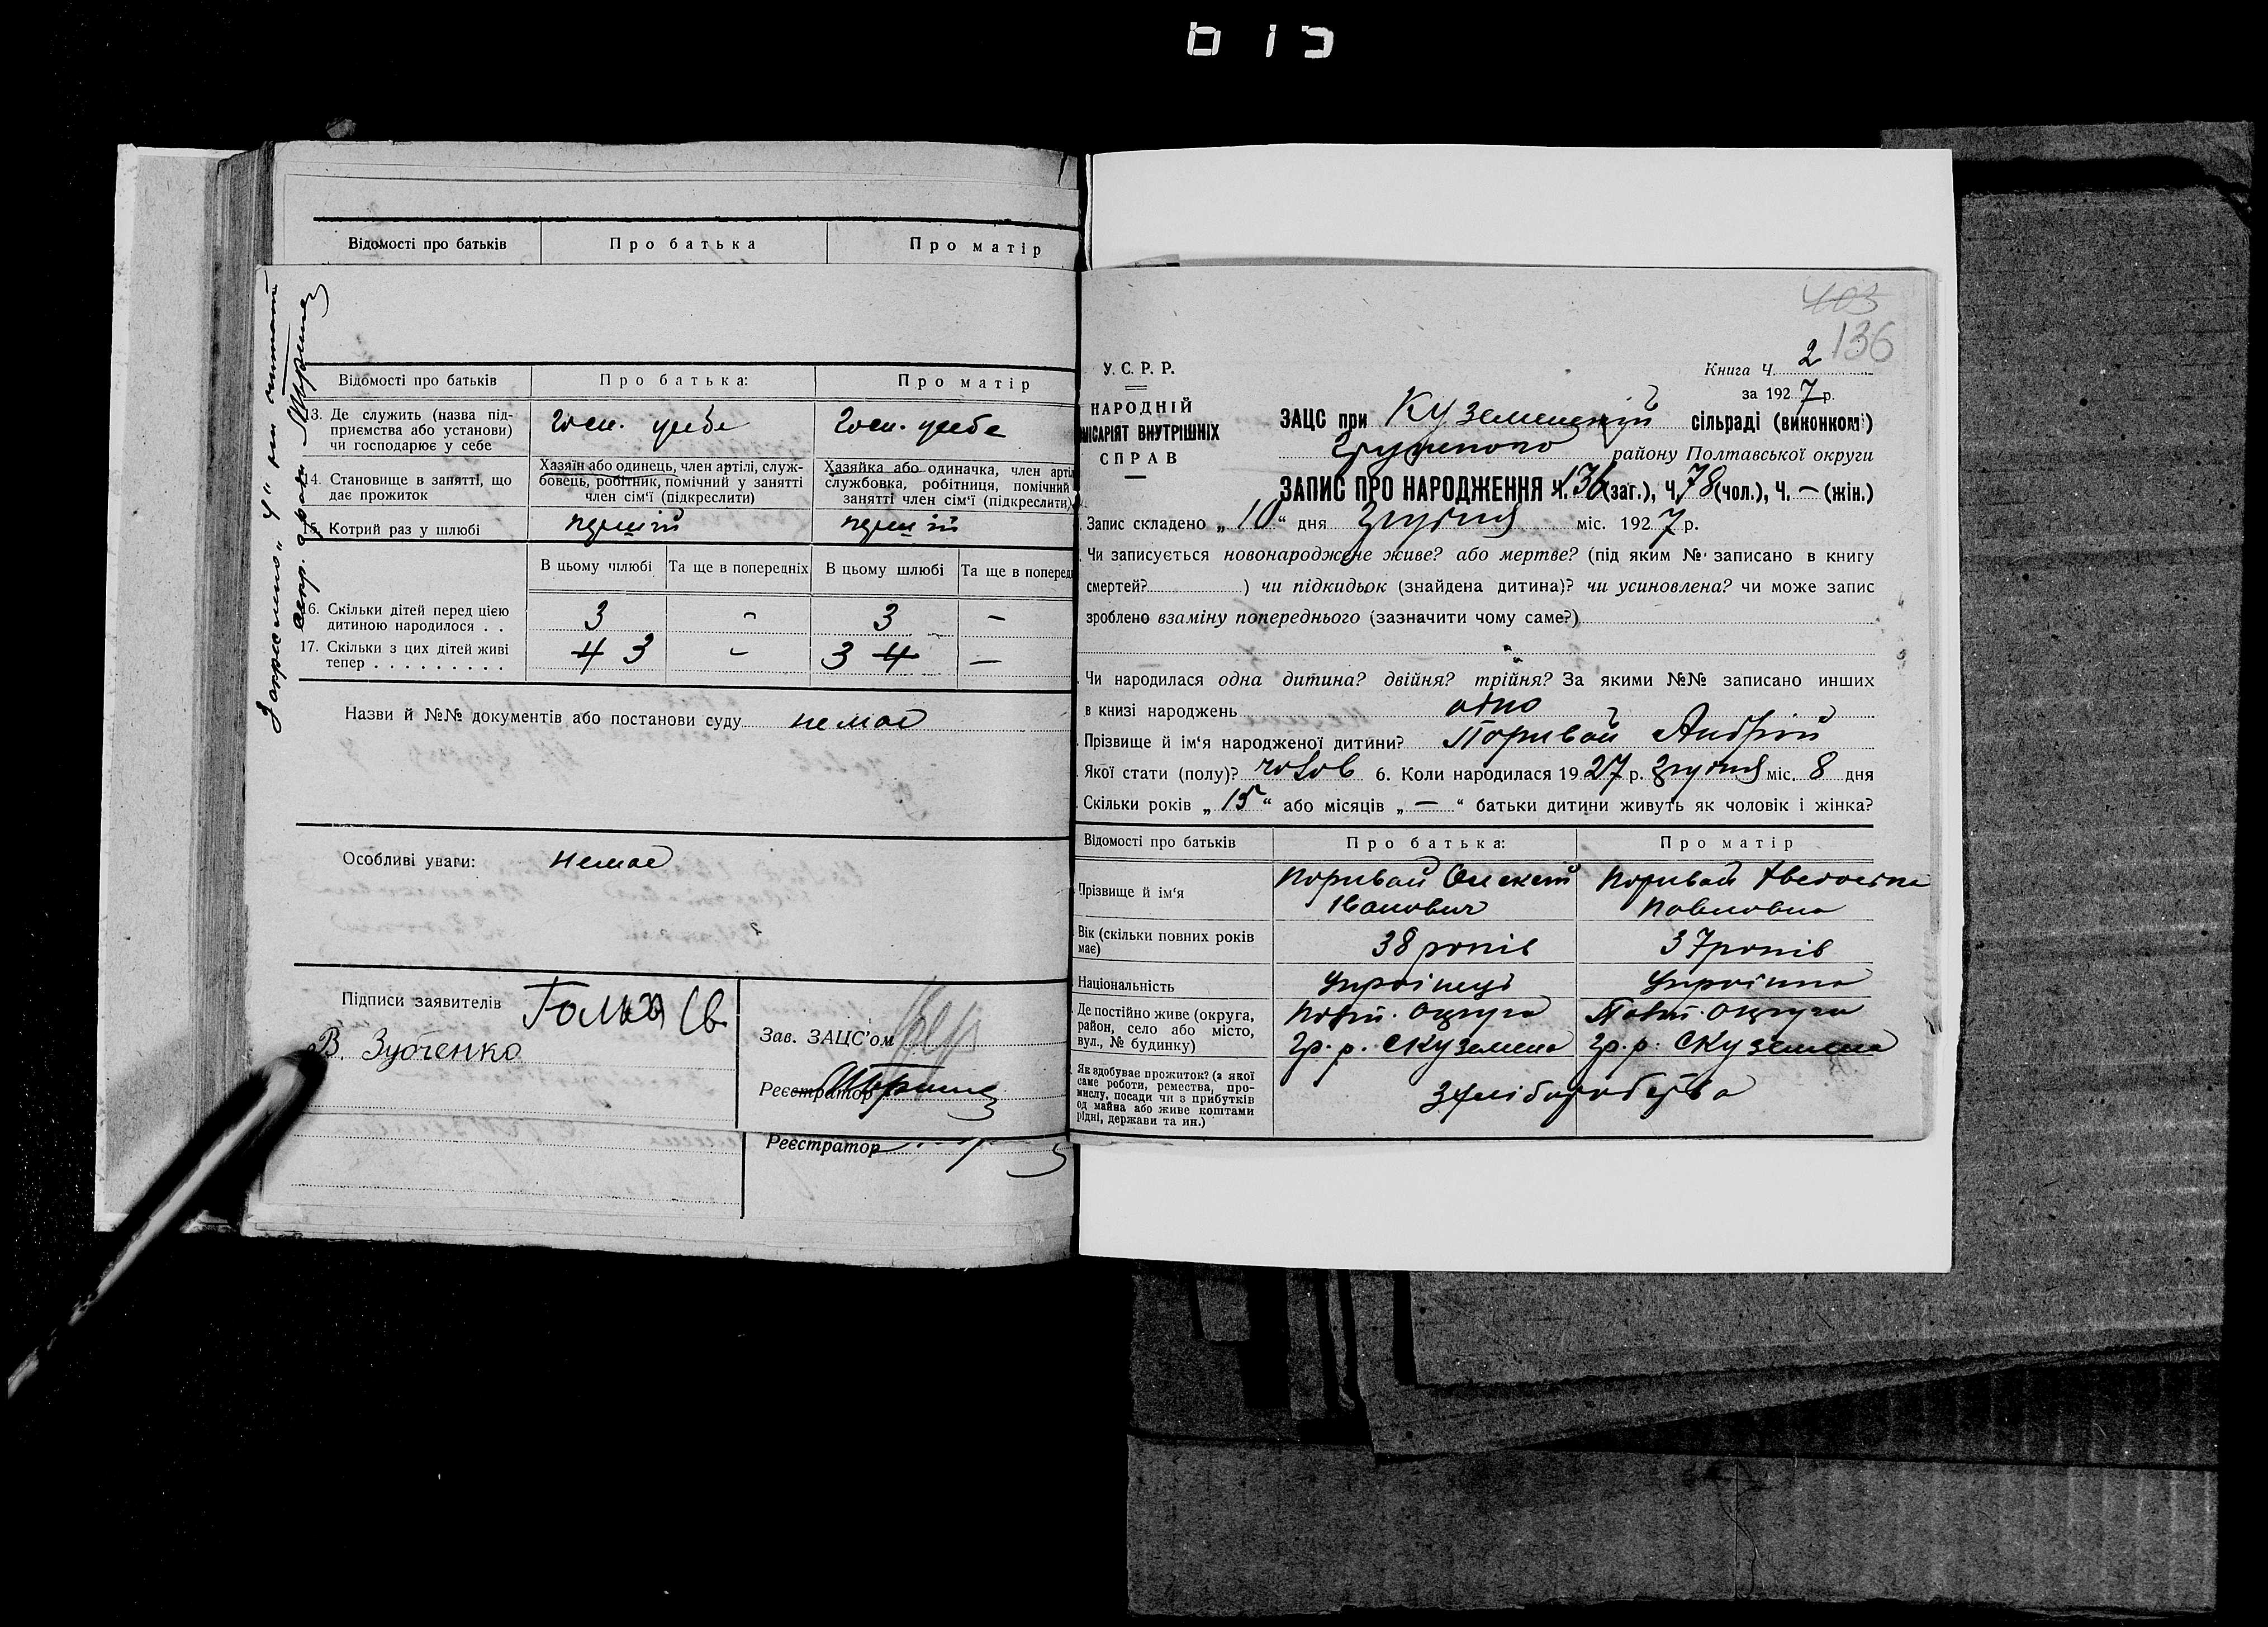 Відомості про батьків Про батька Про матір
Відомості про батьків Про батька: Про матір
13. Де служить (назва під-
приємства або установи)
чи господарює у себе
14. Становище в занятті, що
дає прожиток
Хазяїн або одинець, член артілі, служ-
бовець, робітник, помічний у занятті
член сім'ї (підкреслити)
Хазяйка або одиначка, член артіл
службовка, робітниця, помічний
занятті член сім'ї (підкреслити)
15. Котрий раз у шлюбі
В цьому шлюбі Та ще в попередніх В цьому шлюбі Та ще в поперед
16. Скільки дітей перед цією
дитиною народилося . . 3 - 3 -
17. Скільки з цих дітей живі
тепер . . . . . . . . . 4 3 - 3 4 -
Назви й №№ документів або постанови суду немає
Особливі уваги: немає
Підписи заявителів
В. Зубченко
Зав. ЗАЦС'ом
Реєстратор
Реєстратор
403
136
Книга Ч. 2
за 1927 р.
У. С. Р. Р.
НАРОДНІЙ
МІСАРІЯТ ВНУТРІШНІХ
СПРАВ
ЗАЦС при Куземенській сільраді (виконкомі)
району Полтавської округи
ЗАПИС ПРО НАРОДЖЕННЯ Ч. 136 (заг.), Ч. 78 (чол.), Ч. — (жін.)
Запис складено „ 10 “ дня грудня міс. 1927 р.
Чи записується новонароджене живе? або мертве? (під яким № записано в книгу
смертей? ) чи підкидьок (знайдена дитина)? чи усиновлена? чи може запис
зроблено взаміну попереднього (зазначити чому саме?)
Чи народилася одна дитина? двійня? трійня? За якими №№ записано инших
в книзі народжень одно
Прізвище й ім'я народженої дитини? Поривай Андрій
Якої стати (полу)? чолов 6. Коли народилася 1927 р. грудня міс. 8 дня
Скільки років „ 15 “ або місяців „ — “ батьки дитини живуть як чоловік і жінка?
Відомості про батьків Про батька: Про матір
Прізвище й ім'я
Поривай Олексій
Іванович
Поривай
Павловна
Вік (скільки повних років
має)
38 років 37 років
Національність Українець Українка
Де постійно живе (округа,
район, село або місто,
вул., № будинку)
Полт. Округа
Гр. р. с Куземена
Полт. Округа
Гр. р. с Куземена
Як здобуває прожиток? (з якої
саме роботи, ремества, про-
мислу, посади чи з прибутків
од майна або живе коштами
рідні, держави та ин.)